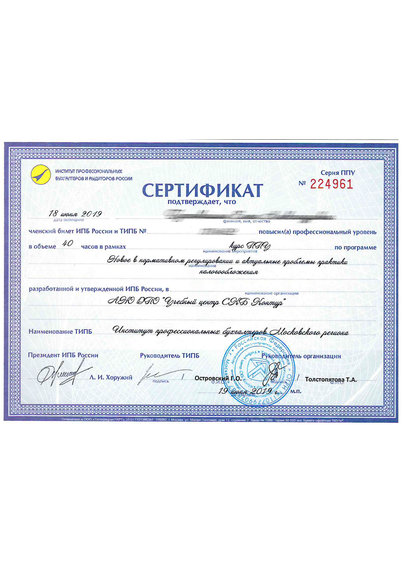 ИНСТИТУТ ПРОФЕССИОНАЛЬНЫХ
БУХГАЛТЕРОВ И АУДИТОРОВ РОССИИ
Серия ППУ
№ 224961
СЕРТИФИКАТ
подтверждает, что
18 июля 2019
членский билет ИПБ России и ТИПБ № повысил(а) профессиональный уровень
в объеме 40 часов в рамках курс ППУ по программе
Новое в нормативном регулировании и актуальные проблемы практики
налогообложения
разработанной и утвержденной ИПБ России, в
АНО ДПО "Учебный центр СКБ Контур"
Наименование ТИПБ Институт профессиональных бухгалтеров Московского региона
Президент ИПБ России Руководитель ТИПБ Руководитель организации
Л. И. Хоружий подпись Островский Г.О. Толстопятова Т.А.
19 июля 2019 г. м.п.